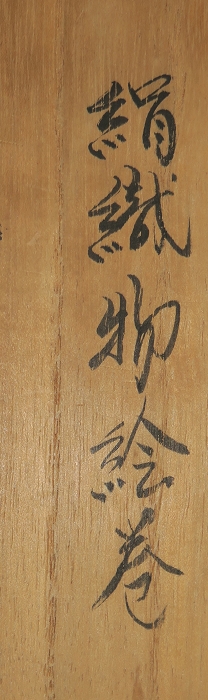 絹織物絵巻